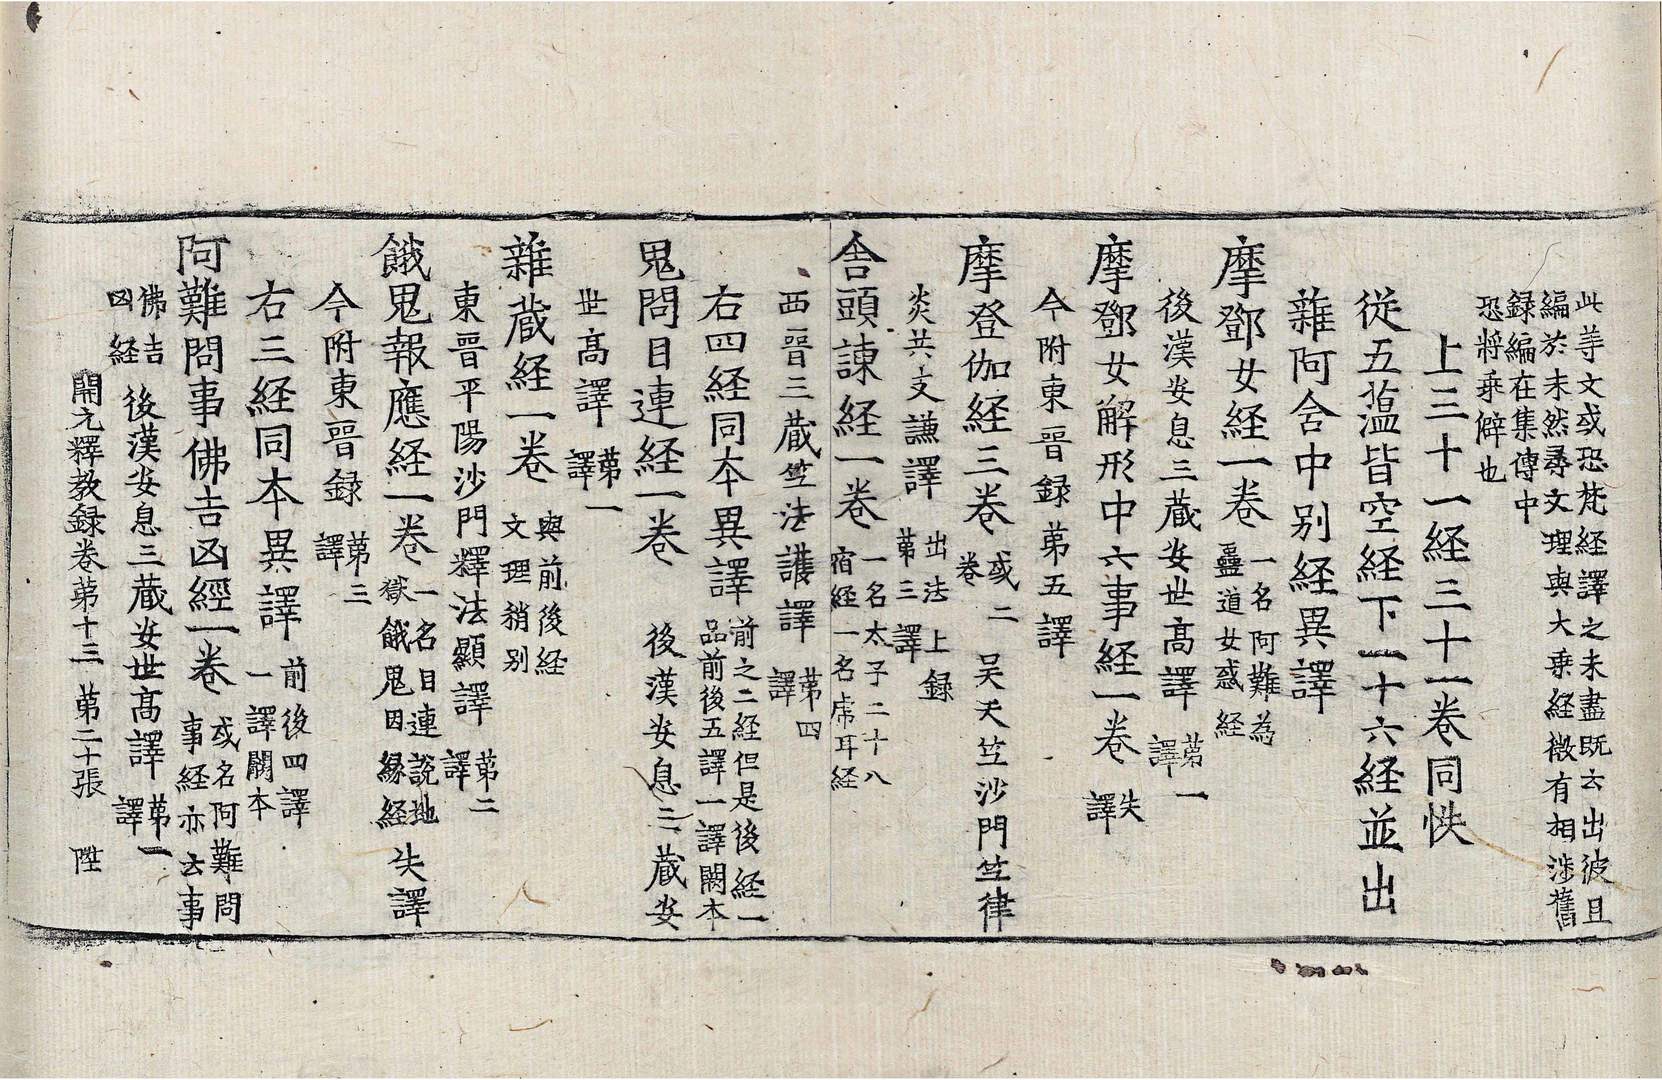 此䓁文或恐梵経譯之未盡既云出彼且
編於末然尋文理與大乗経微有相渉舊
録編在集傳中
恐將乗僻也
上三十一経三十一卷同帙
従五藴皆空経下一十六経並出
雜阿含中别経異譯
摩鄧女経一卷 一名阿難為
蠱道女惑経
後漢安息三藏安世髙譯 苐一
譯
摩鄧女解形中六事経一卷 失
譯
今附東晉録苐五譯
摩登伽経三卷 或二
卷 吴天竺沙門竺律
炎共支謙譯 出法上録
苐三譯
舎頭諫経一卷 一名太子二十八
宿経一名虎耳経
西晉三藏竺法護譯 苐四
譯
右四経同本異譯 前之二経但是後経一
品前後五譯一譯闕本
鬼問目連経一卷 後漢安息三藏安
世髙譯 苐一
譯
雜藏経一卷 與前後経
文理稍别
東晉平陽沙門釋法顯譯 苐二
譯
餓鬼報應経一卷 一名目連説地
獄餓鬼因縁経 失譯
今附東晉録 苐三
譯
右三経同本異譯 前後四譯
一譯闕本
阿難問事佛吉凶經一卷 或名阿難問
事経亦云事
佛吉
凶経 後漢安息三藏安世髙譯 苐一
譯
開元釋教録卷苐十三 苐二十張 陞